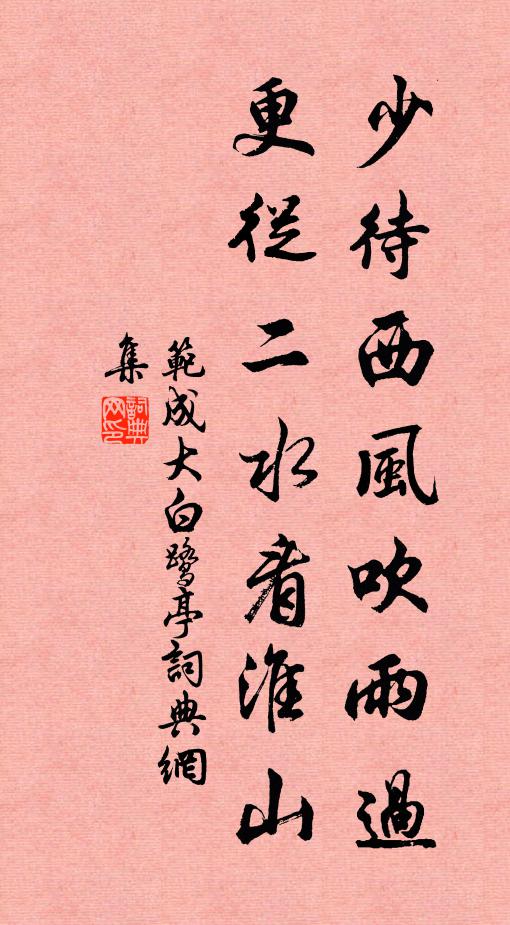 少待西風吹雨過
更從二水看淮山
範成大白鷺亭詞典網
集
詞典網印